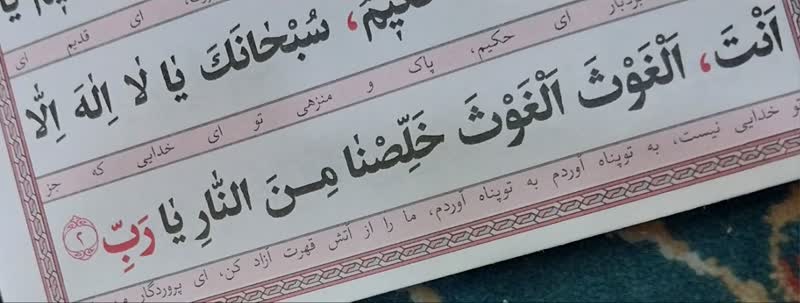 حَكيمُ، سُبْحانَكَ يا لا اِلٰهَ اِلّا
بردبار ای حکیم، پاک و منزهی تو ای خدایی که جز
اَنْتَ، اَلْغَوْثَ اَلْغَوْثَ خَلِّصْنا مِنَ النّارِ يا رَبِّ ﴿٢﴾
تو خدایی نیست، به توپناه آوردم به توپناه آوردم، ما را از آتش قهرت آزاد کن، ای پروردگار